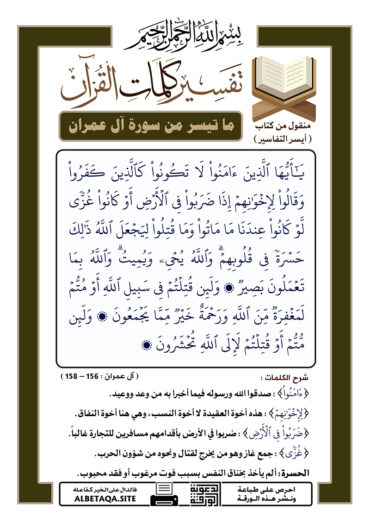 بِسْمِ اللَّهِ الرَّحْمَنِ الرَّحِيمِ
تفسير كلمات القرآن
ما تيسر من سورة آل عمران
منقول من كتاب
( أيسر التفاسير )
يَـٰٓأَيُّهَا ٱلَّذِينَ ءَامَنُوا۟ لَا تَكُونُوا۟ كَٱلَّذِينَ كَفَرُوا۟
وَقَالُوا۟ لِإِخْوَٰنِهِمْ إِذَا ضَرَبُوا۟ فِى ٱلْأَرْضِ أَوْ كَانُوا۟ غُزًّى
لَّوْ كَانُوا۟ عِندَنَا مَا مَاتُوا۟ وَمَا قُتِلُوا۟ لِيَجْعَلَ ٱللَّهُ ذَٰلِكَ
حَسْرَةً فِى قُلُوبِهِمْ ۗ وَٱللَّهُ يُحْىِۦ وَيُمِيتُ ۗ وَٱللَّهُ بِمَا
تَعْمَلُونَ بَصِيرٌ ۞ وَلَئِن قُتِلْتُمْ فِى سَبِيلِ ٱللَّهِ أَوْ مُتُّمْ
لَمَغْفِرَةٌ مِّنَ ٱللَّهِ وَرَحْمَةٌ خَيْرٌ مِّمَّا يَجْمَعُونَ ۞ وَلَئِن
مُّتُّمْ أَوْ قُتِلْتُمْ لَإِلَى ٱللَّهِ تُحْشَرُونَ ۞
شرح الكلمات :
( آل عمران : 156 – 158 )
﴿ءَامَنُوا۟﴾ : صدقوا الله ورسوله فيما أخبرا به من وعد ووعيد.
﴿لِإِخْوَٰنِهِمْ﴾ : هذه أخوة العقيدة لا أخوة النسب، وهي هنا أخوة النفاق.
﴿ضَرَبُوا۟ فِى ٱلْأَرْضِ﴾ : ضربوا في الأرض بأقدامهم مسافرين للتجارة غالباً.
﴿غُزًّى﴾ : جمع غاز وهو من يخرج لقتال ونحوه من شؤون الحرب.
الحسرة: ألم يأخذ بخناق النفس بسبب فوت مرغوب أو فقد محبوب.
احرص على طباعة
ونشر هذه الورقة
الدعوية
الورقة
فالدال على الخير كفاعله
ALBETAQA.SITE